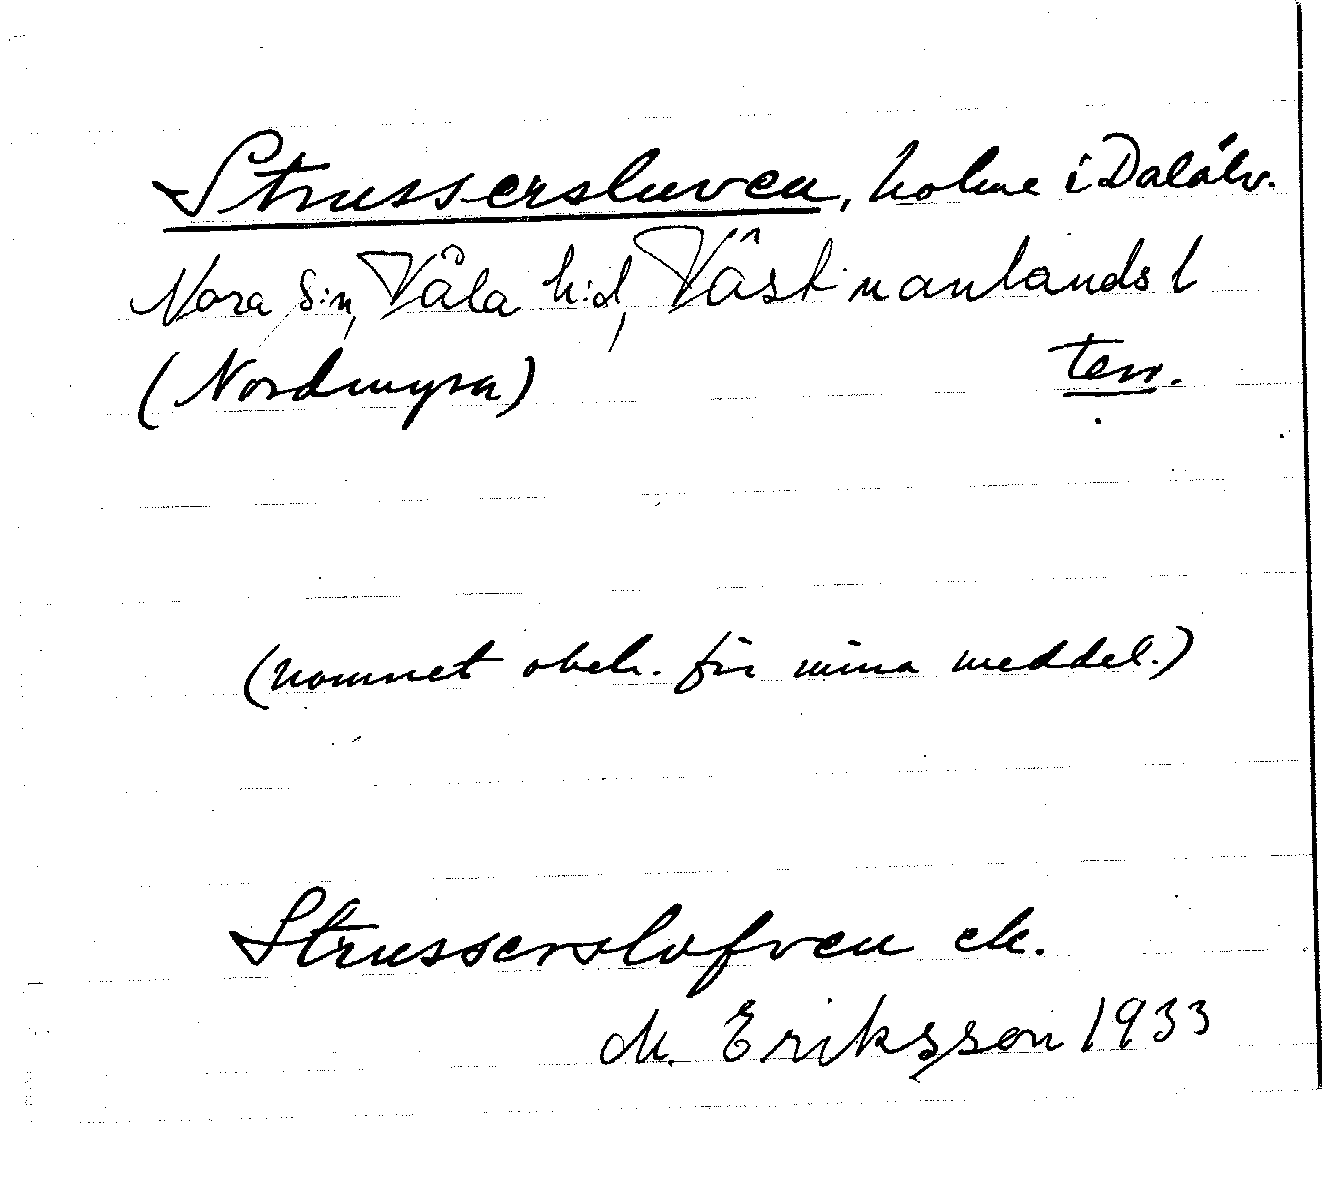 Strussersluven, holme i Dalälv.
Nora s:n, Våla h:d, Västmanlands l
(Nordmyra) terr.
(namnet obek. för mina meddel.)
Strusserslofven ek.
M. Eriksson 1933